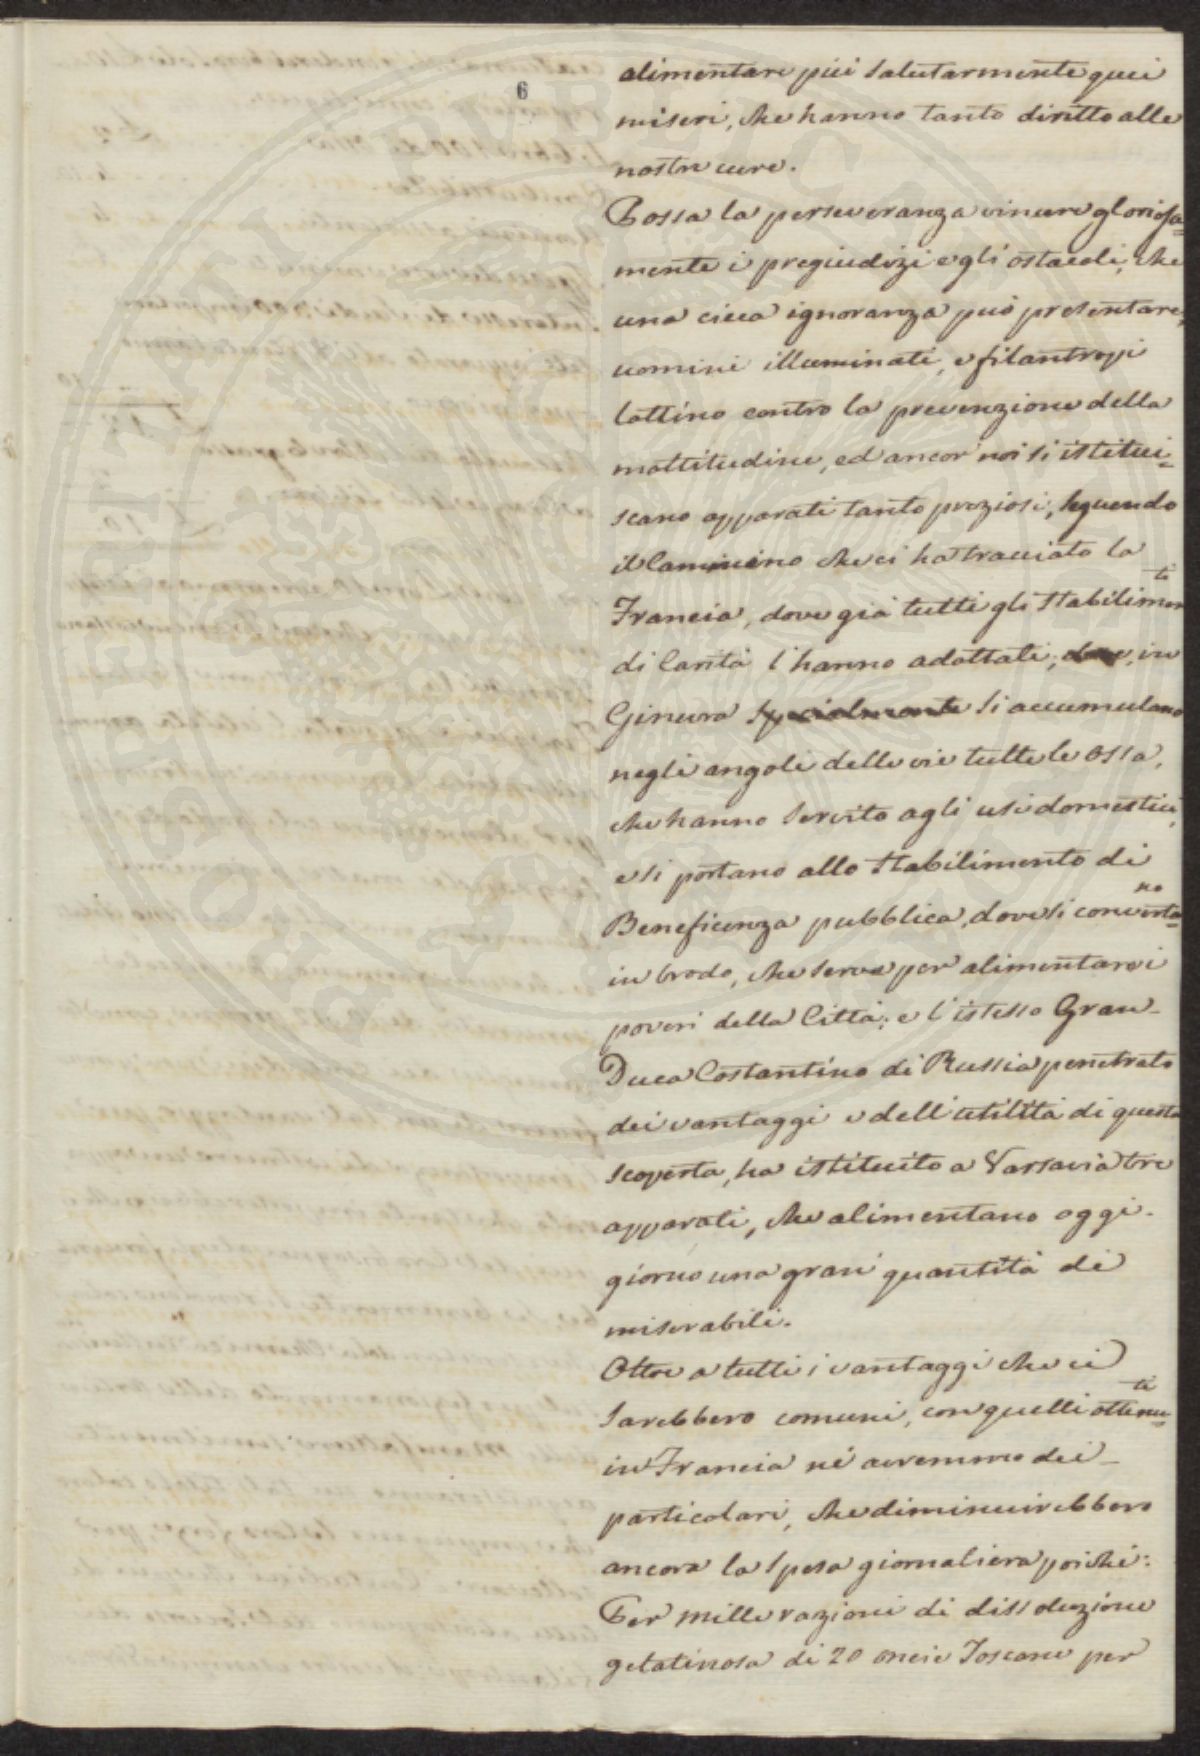 6
alimentare più salutarmente quei
miseri, che hanno tanto diritto alle
nostre cure.
Possa la perseveranza vincere gloriosa=
mente i pregiudizi e gli ostacoli, che
una cieca ignoranza può presentare,
uomini illuminati, e filantropi
lottino contro la prevenzione della
moltitudine, ed ancor noi si istitui=
scano apparati tanto preziosi, seguendo
il Cammino che ci ha tracciato la
Francia, dove già tutti gli Stabilimenti
di Carità l'hanno adottati; dove, in
Ginevra specialmente si accumulano
negli angoli delle vie tutte le ossa,
che hanno servito agli usi domestici,
e si portano allo Stabilimento di
Beneficenza pubblica, dove si convertono
in brodo, che serve per alimentare i
poveri della Città; e l'istesso Gran-
Duca Costantino di Russia penetrato
dei vantaggi e dell'utilità di questa
scoperta, ha istituito a Varsavia tre
apparati, che alimentano oggi-
giorno una gran quantità di
miserabili.
Oltre a tutti i vantaggi che ci
sarebbero comuni, con quelli ottenuti
in Francia né avremmo dei-
particolari, che diminuirebbero
ancora la spesa giornaliera poiché:
Per mille razioni di dissoluzione
gelatinosa di 20 oncie Toscane per